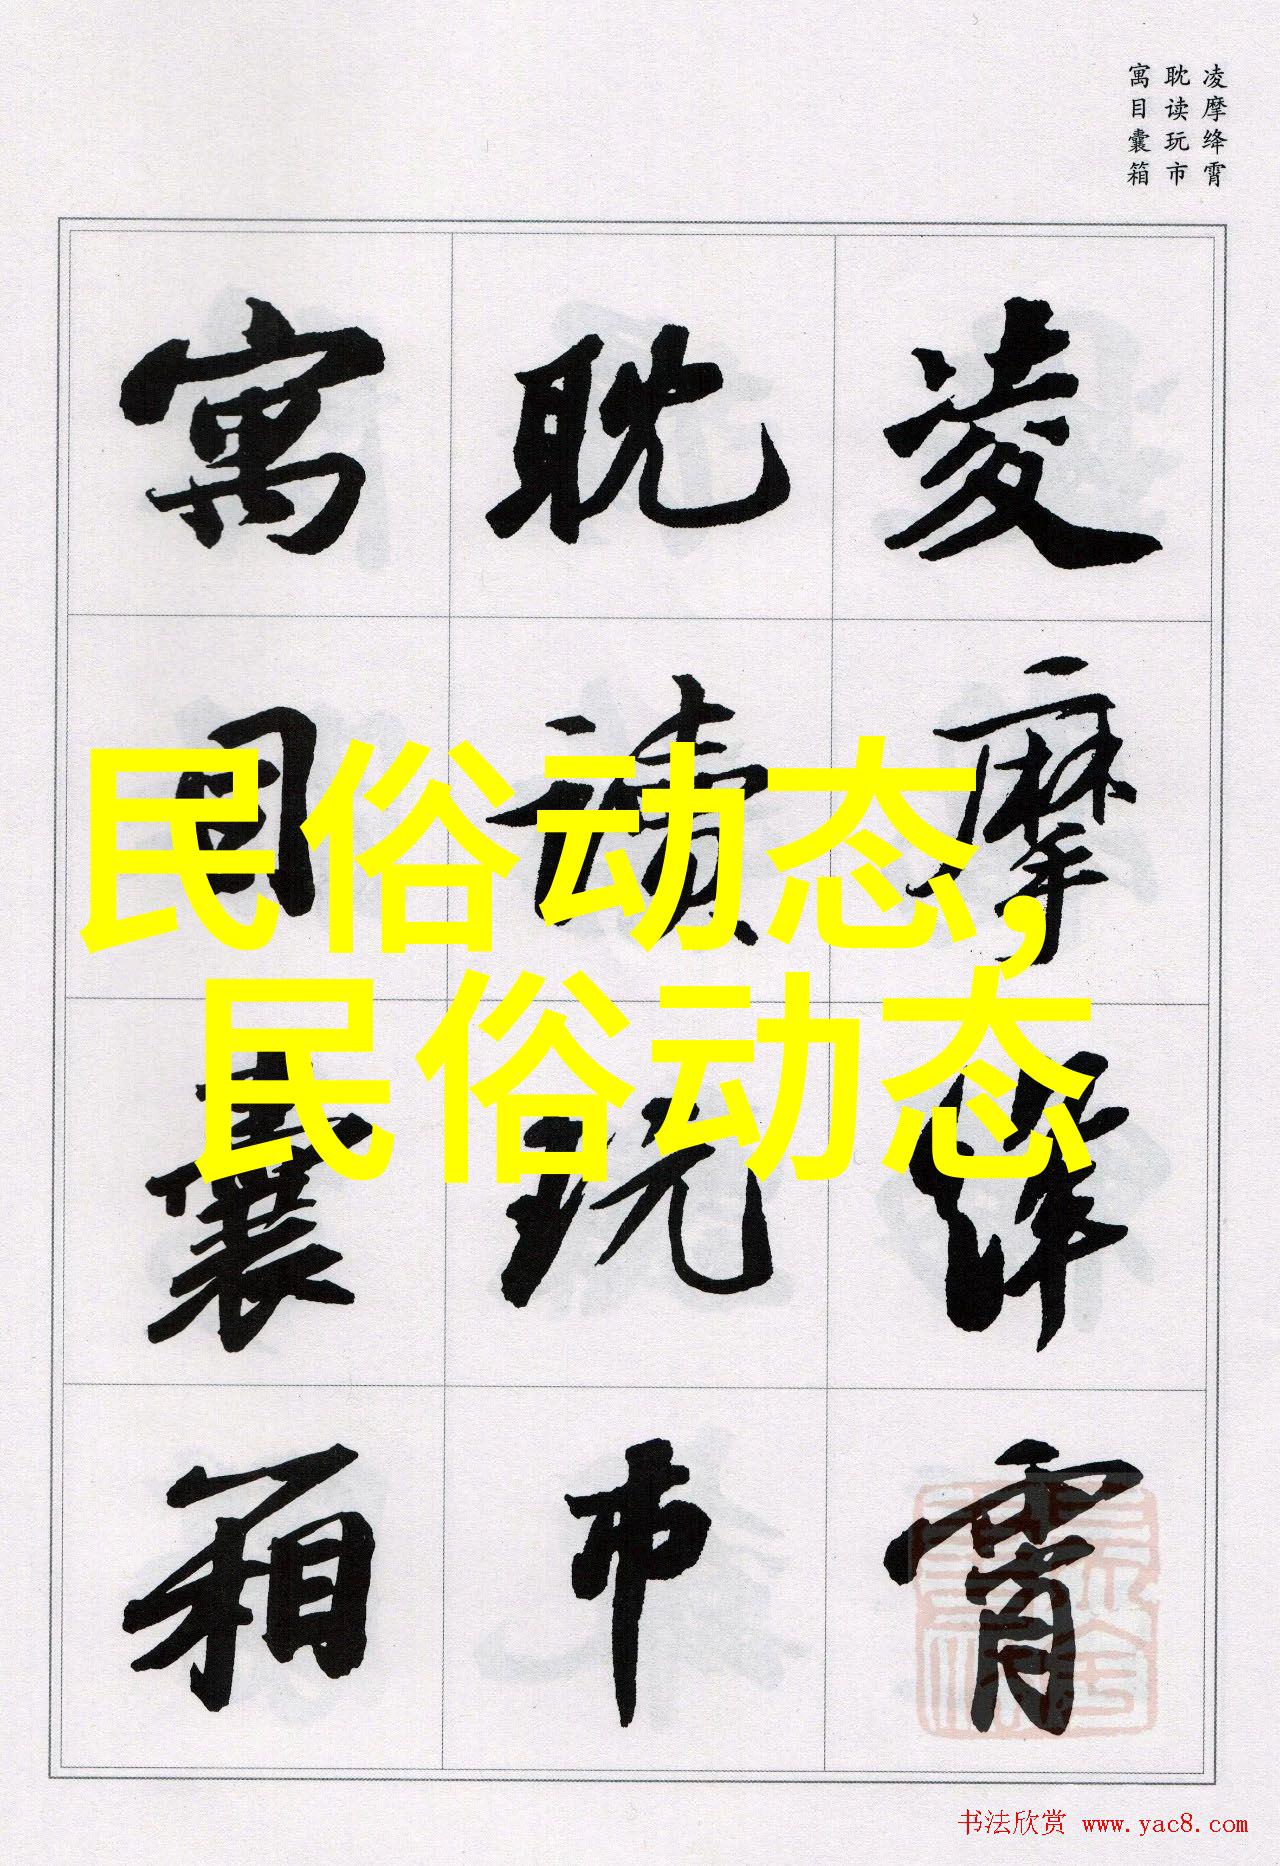 凌摩绛霄
耽读玩市
寓目囊箱
凌摩绛霄
耽讀玩市
寓目囊箱
民俗动态,
民俗动态
书法欣赏 www.yac8.com